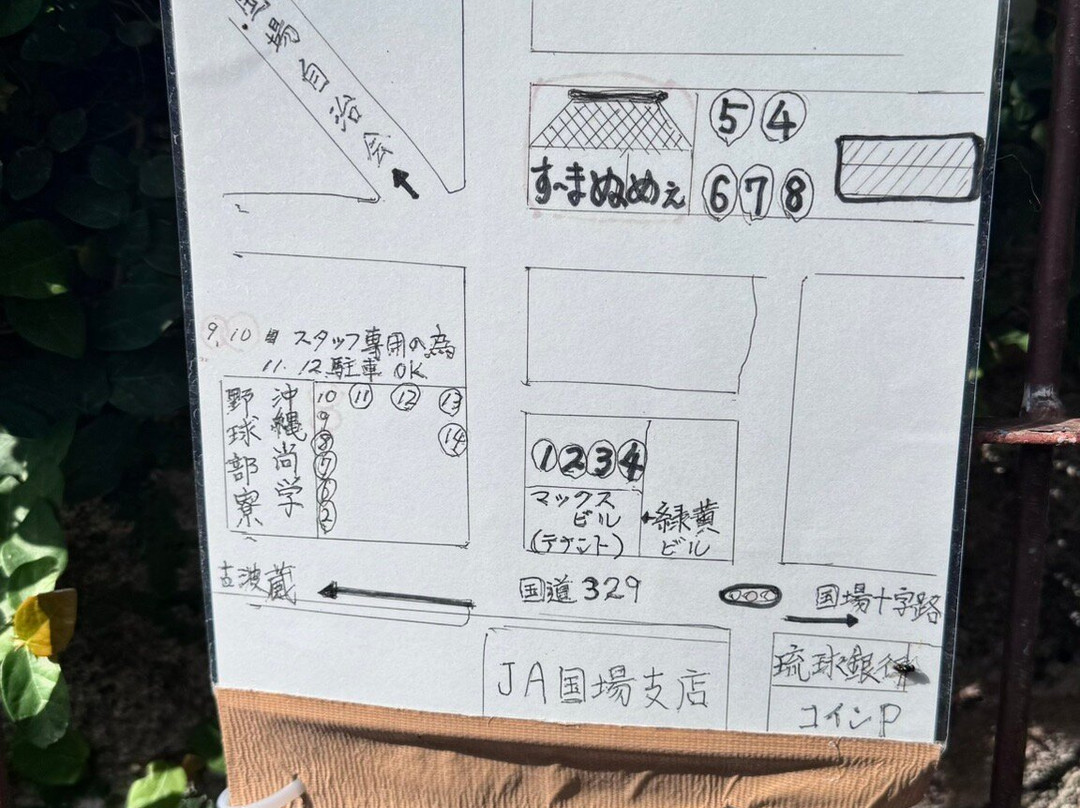 国場自治会
⑤ ④
す〜まぬめぇ
⑥ ⑦ ⑧
9, 10 スタッフ専用の為
11. 12 駐車 OK
沖縄尚学
野球部寮
10 ⑪ ⑫ ⑬
9
⑧ ⑭
⑦
⑥
②
① ② ③ ④
マックス
ビル
(テナント)
緑黄
ビル
古波蔵
国道329
国場十字路
JA国場支店
琉球銀行
コインP